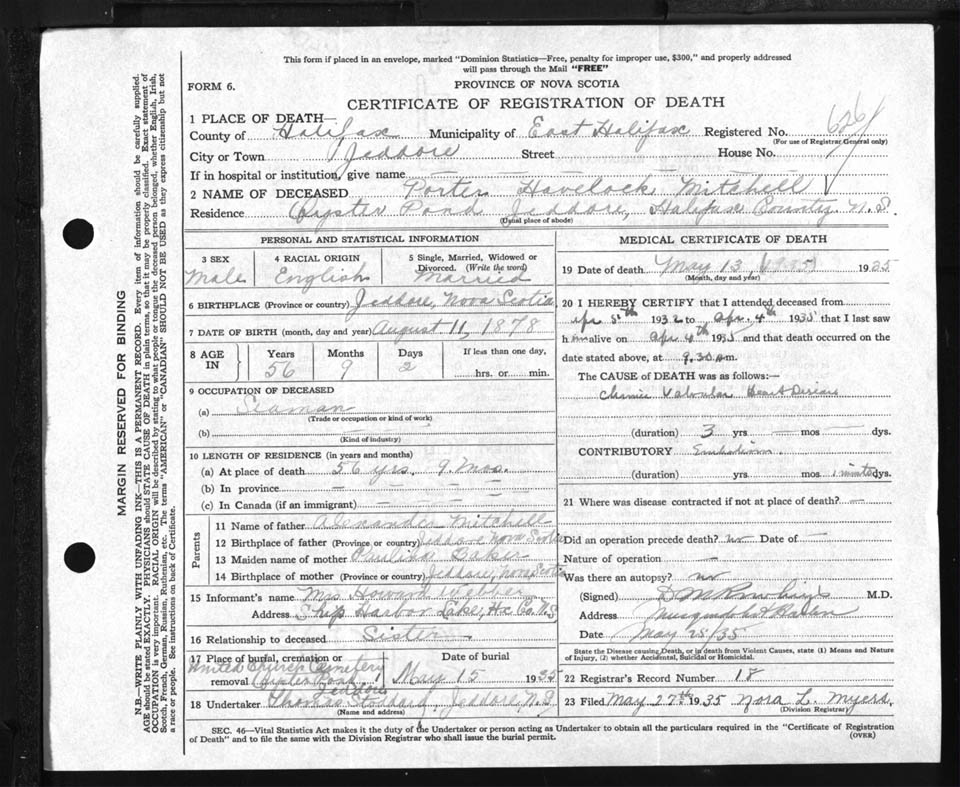 This form if placed in an envelope, marked "Dominion Statistics—Free, penalty for improper use, $300," and properly addressed
will pass through the Mail "FREE"
FORM 6.
PROVINCE OF NOVA SCOTIA
CERTIFICATE OF REGISTRATION OF DEATH
1 PLACE OF DEATH—
County of Halifax Municipality of East Halifax Registered No. 626
(For use of Registrar General only)
City or Town Jeddore Street House No.
If in hospital or institution, give name
2 NAME OF DECEASED Porter Havelock Mitchell
Residence Oyster Pond Jeddore, Halifax County. N.S.
(Usual place of abode)
PERSONAL AND STATISTICAL INFORMATION
3 SEX 4 RACIAL ORIGIN 5 Single, Married, Widowed or
Divorced. (Write the word)
Male English Married
6 BIRTHPLACE (Province or country) Jeddore, Nova Scotia
7 DATE OF BIRTH (month, day and year) August 11, 1878
8 AGE IN Years Months Days If less than one day,
56 9 2 hrs. or min.
9 OCCUPATION OF DECEASED
(a) Seaman
(Trade or occupation or kind of work)
(b) —
(Kind of industry)
10 LENGTH OF RESIDENCE (in years and months)
(a) At place of death 56 yrs. 9. Mos.
(b) In province — — — —
(c) In Canada (if an immigrant) — — — —
Parents
11 Name of father Alexander Mitchell
12 Birthplace of father (Province or country) Jeddore Nova Scotia
13 Maiden name of mother Baker
14 Birthplace of mother (Province or country) Jeddore, Nova Scotia
15 Informant's name Mrs Howard Webber
Address Ship Harbor Lake, Hx. Co. N.S
16 Relationship to deceased Sister
17 Place of burial, cremation or Date of burial
United Church Cemetery
removal Oyster Pond Jeddore May 15 1935
18 Undertaker Thomas Stoddard, Jeddore N.S
(Name and address)
MEDICAL CERTIFICATE OF DEATH
19 Date of death May 13, (1935) 1935
(Month, day and year)
20 I HEREBY CERTIFY that I attended deceased from
Apr 5th 1932 to Apr. 4th 1935 that I last saw
him alive on Apr 4th 1935 and that death occurred on the
date stated above, at 9.30 a.m.
The CAUSE of DEATH was as follows:—
Chronic Valvular Heart Disease
(duration) 3 yrs — mos — dys.
CONTRIBUTORY Embolism.
(duration) yrs mos minute dys.
21 Where was disease contracted if not at place of death? —
Did an operation precede death? no Date of —
Nature of operation —
Was there an autopsy? no
(Signed) D M Rowlings M.D.
Address Musquodoboit Harbor
Date May 28/35
State the Disease causing Death, or in death from Violent Causes, state (1) Means and Nature
of Injury, (2) whether Accidental, Suicidal or Homicidal.
22 Registrar's Record Number 18
23 Filed May 27th 1935 Nora L. Myers.
(Division Registrar)
SEC. 46—Vital Statistics Act makes it the duty of the Undertaker or person acting as Undertaker to obtain all the particulars required in the "Certificate of Registration
of Death" and to file the same with the Division Registrar who shall issue the burial permit.
(OVER)
MARGIN RESERVED FOR BINDING
N.B.—WRITE PLAINLY WITH UNFADING INK—THIS IS A PERMANENT RECORD. Every item of information should be carefully supplied.
AGE should be stated EXACTLY. PHYSICIANS should STATE CAUSE OF DEATH in plain terms, so that it may be properly classified. Exact statement of
OCCUPATION is very important. RACIAL ORIGIN will be described by stating to what people or tongue the deceased person belonged, whether English, Irish,
Scotch, French, German, Russian, Ruthenian, etc. The terms "AMERICAN" or "CANADIAN" SHOULD NOT BE USED as they express citizenship but not
a race or people. See instructions on back of Certificate.